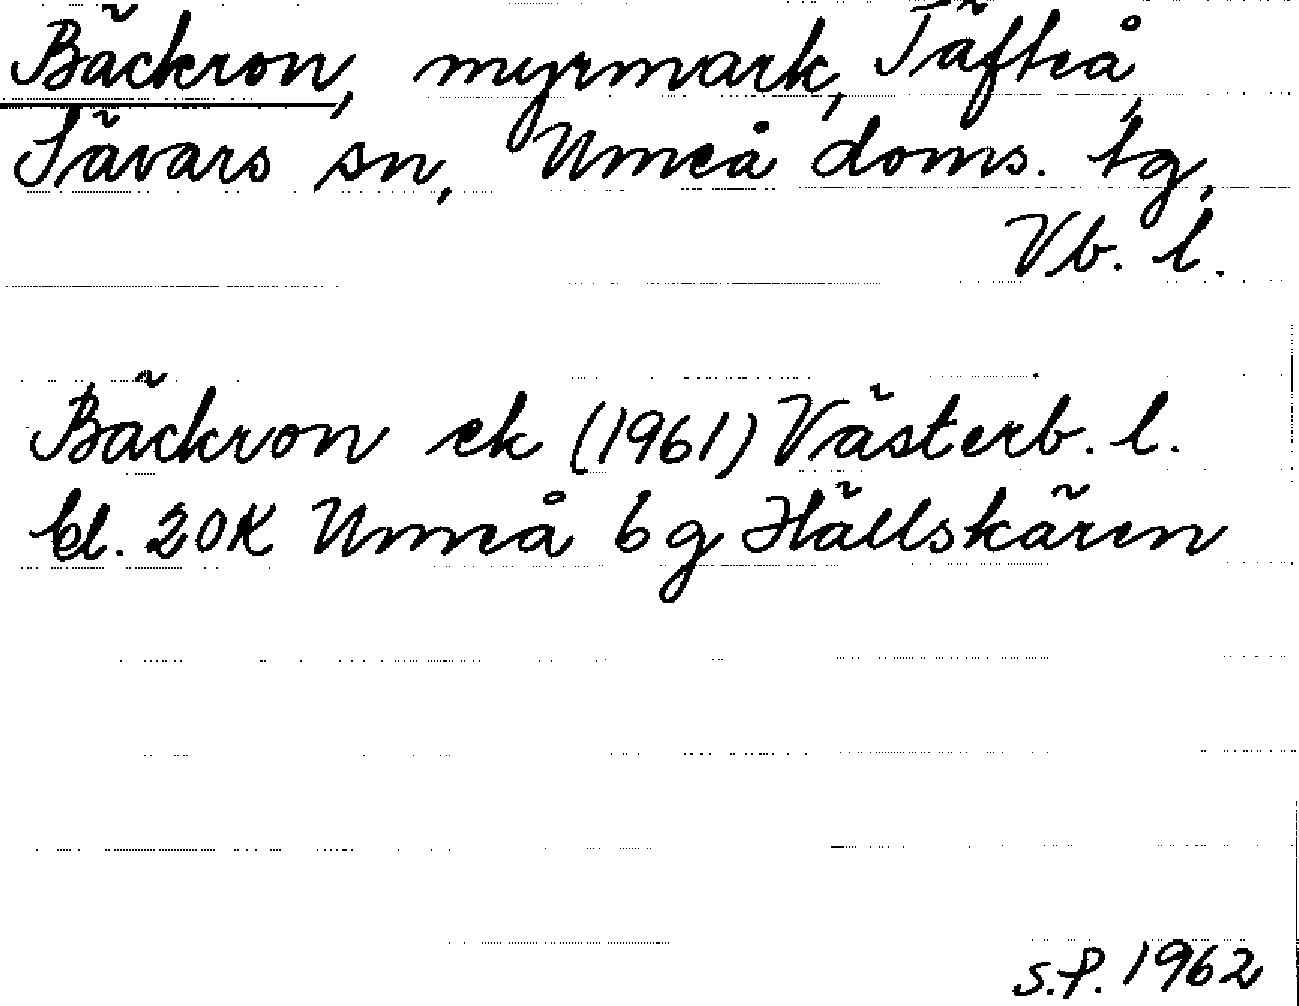 Bäckron, myrmark, Täfteå,
Sävars sn, Umeå doms. tg,
Vb. l.
Bäckron ek (1961) Västerb. l.
bl. 20K Umeå 6g Hällskären
S.P. 1962